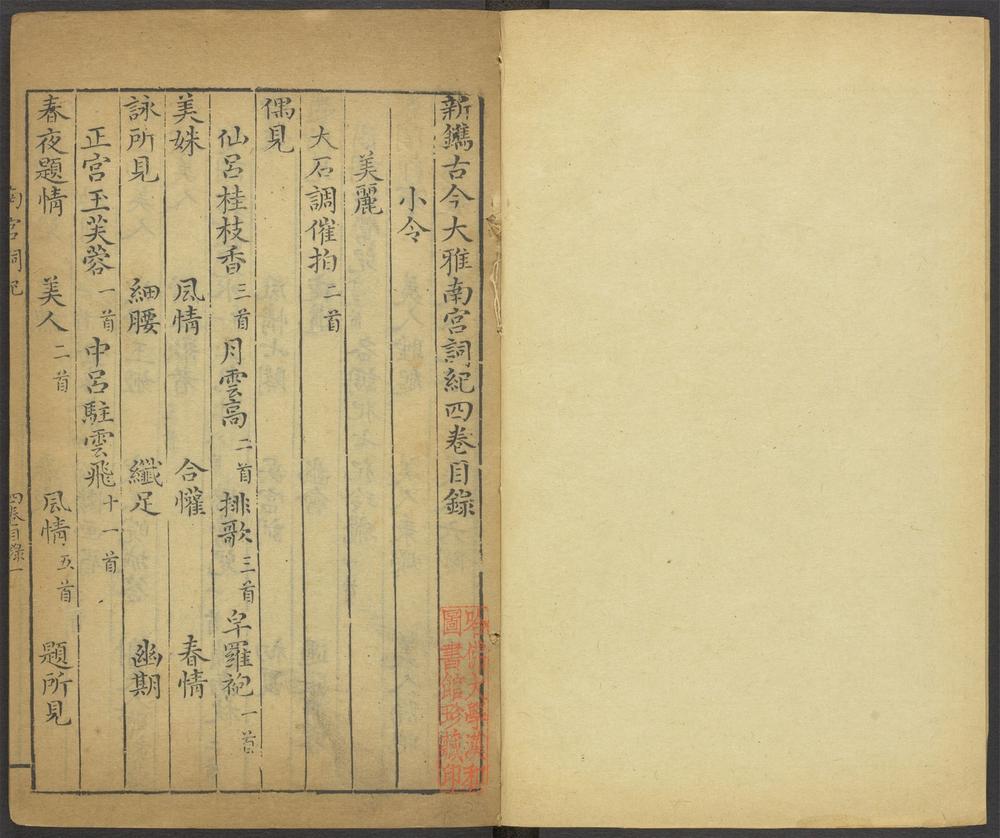 新鐫古今大雅南宫詞紀四卷目錄
小令
美麗
大石調催拍二首
偶見
仙呂桂枝香三首 月雲高二首 排歌三首 皂羅袍一首
美姝 風情 合懽 春情
詠所見 細腰 纖足 幽期
正宫玉芙蓉一首 中呂駐雲飛十一首
春夜題情 美人二首 風情五首 題所見
南宫詞紀 四卷目錄 一
哈佛大學漢和
圖書館珍藏印